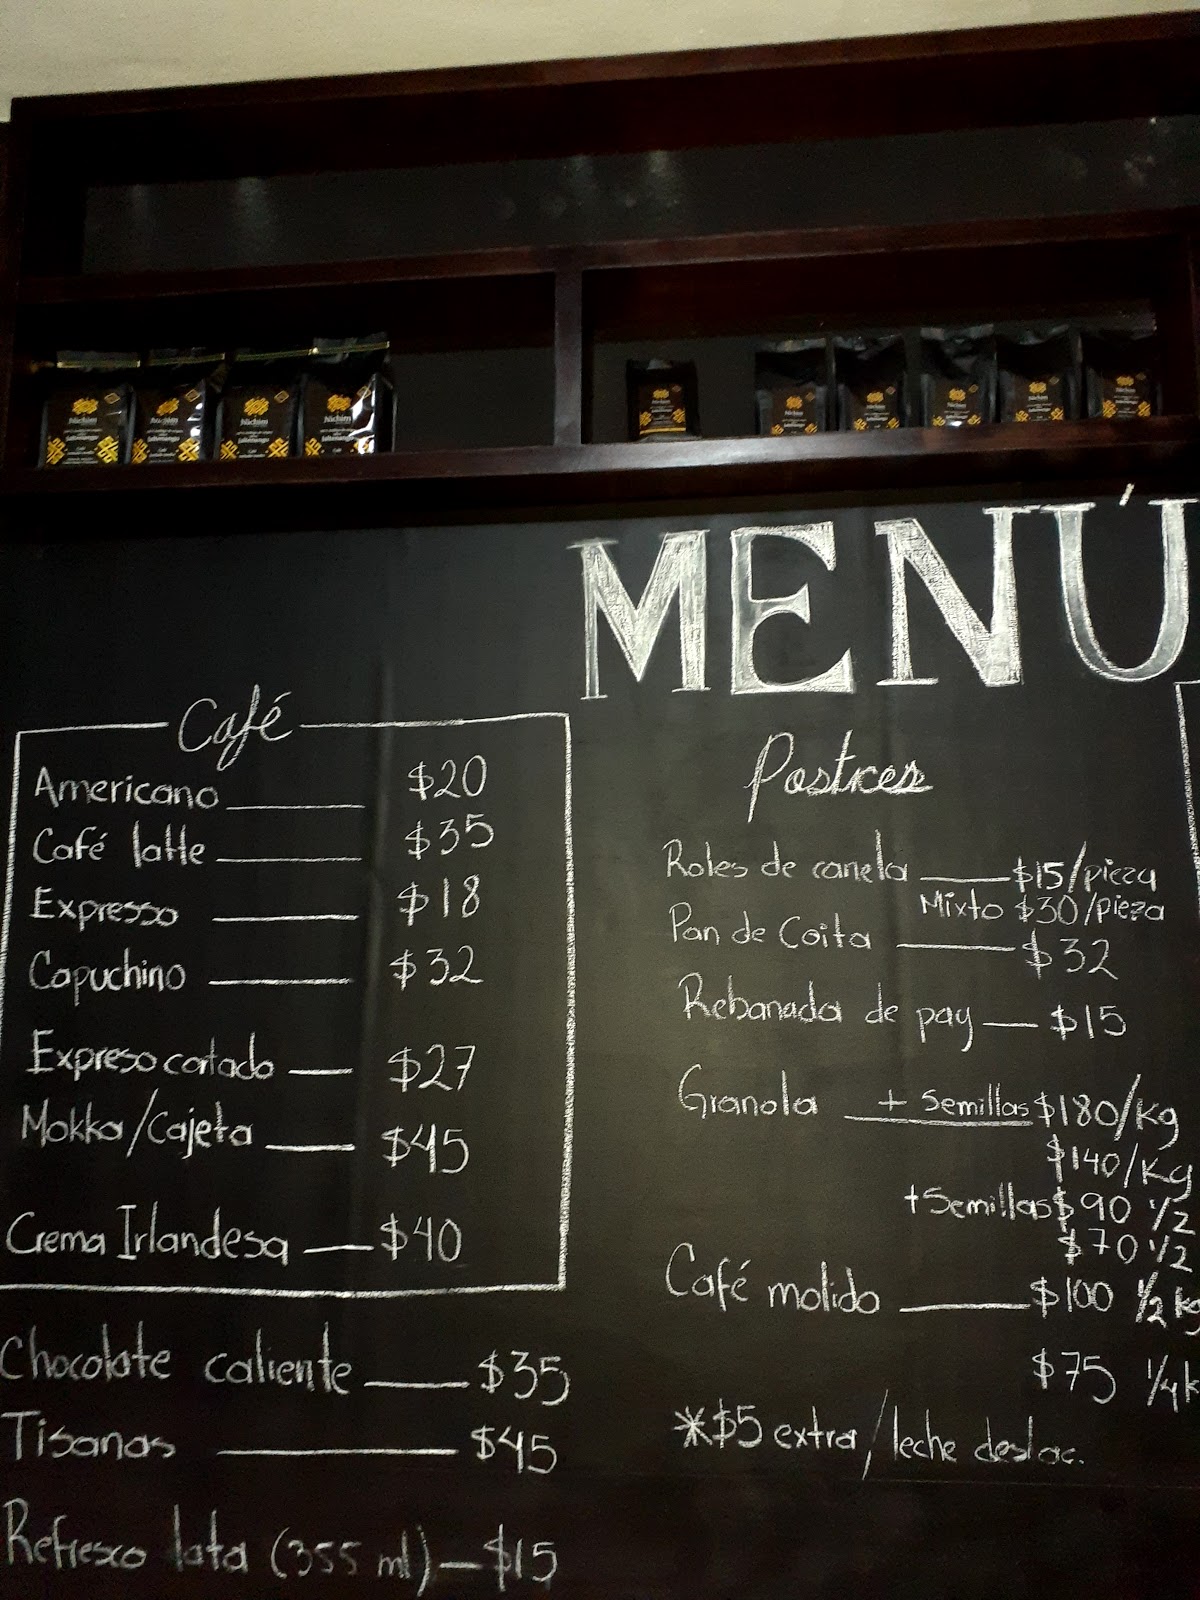 Nichim
Nichim
Nichim
Nichim
Nichim
Nichim
Nichim
MENÚ
Café
Americano $20
Café latte $35
Expresso $18
Capuchino $32
Expreso cortado $27
Mokka/Cajeta $45
Crema Irlandesa $40
Chocolate caliente $35
Tisanas $45
Refresco lata (355 ml) $15
Postres
Roles de canela $15/pieza
Mixto $30/pieza
Pan de Coita $32
Rebanada de pay $15
Granola + Semillas $180/Kg
$140/Kg
+Semillas $90 1/2
$70 1/2
Café molido $100 1/2 kg
$75 1/4 k
*$5 extra/leche deslac.